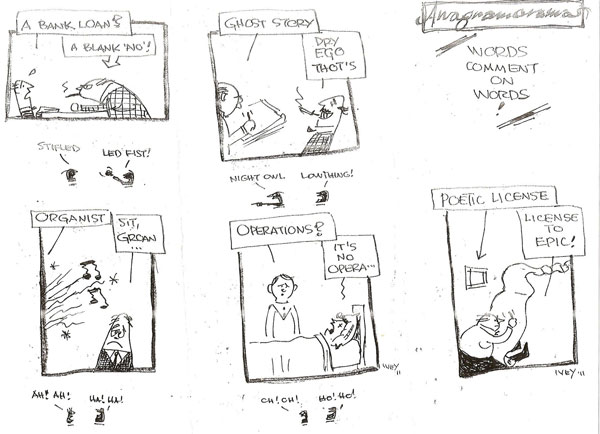 A BANK LOAN?
A BLANK 'NO'!
STIFLED
LED FIST!
GHOST STORY
DRY
EGO
THOT'S
NIGHT OWL
LOWTHING!
Anagramarama
WORDS
COMMENT
ON
WORDS
!
ORGANIST
SIT,
GROAN
...
AH! AH!
HA! HA!
OPERATIONS?
IT'S
NO
OPERA...
IVEY '11
OH! OH!
HO! HO!
POETIC LICENSE
LICENSE
TO
EPIC!
IVEY '11